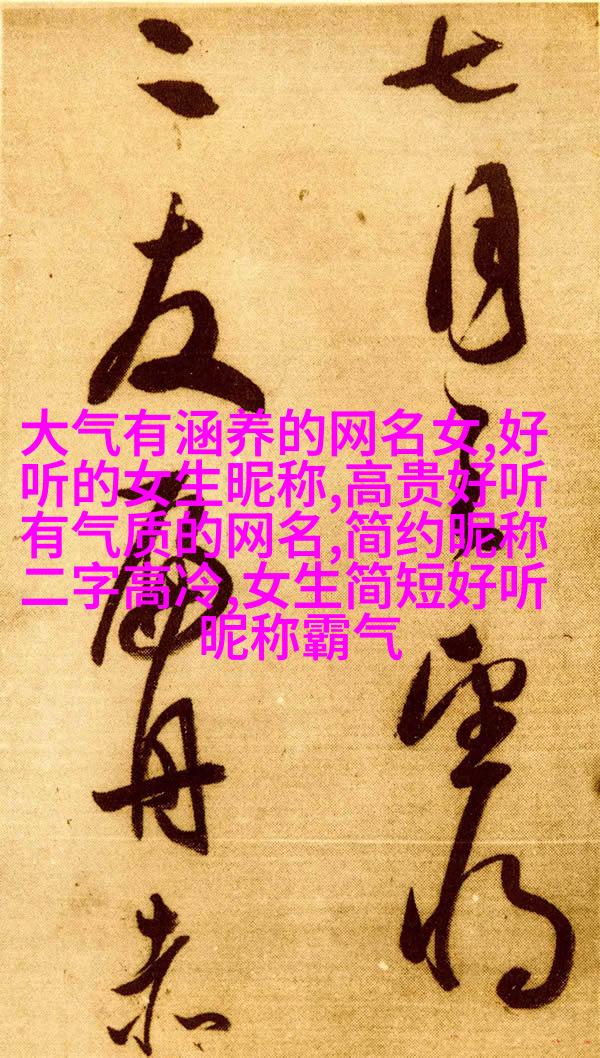 七月望将
二友舟赤
大气有涵养的网名女,好
听的女生昵称,高贵好听
有气质的网名,简约昵称
二字高冷,女生简短好听
昵称霸气